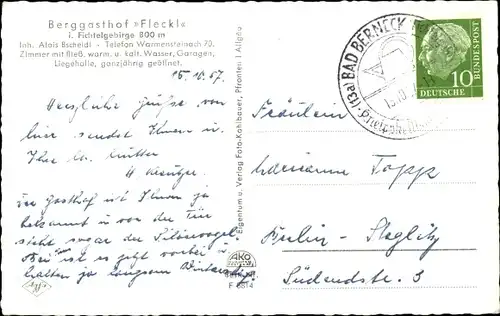 Berggasthof »Fleckl«
i. Fichtelgebirge 800 m
Inh. Alois Bscheidl - Telefon Warmensteinach 70.
Zimmer mit fließ. warm. u. kalt. Wasser, Garagen,
Liegehalle, ganzjährig geöffnet.
15.10.57.
Herzliche Grüße von
hier sendet Ihnen u.
Ihrer Mutter
H
Der Gasthof ist Ihnen ja
bekannt u vor der Tür
steht sogar der Silbervogel.
es jetzt vorbei u
halten ja langsam
Eigentum u. Verlag Foto-Kohlbauer, Pfronten i. Allgäu
AKO
F 6814
Agfa
(13a) BAD BERNECK
15.10.
10
DEUTSCHE
BUNDESPOST
Fräulein
Marianne Topp
Berlin - Steglitz
Südendstr. 3